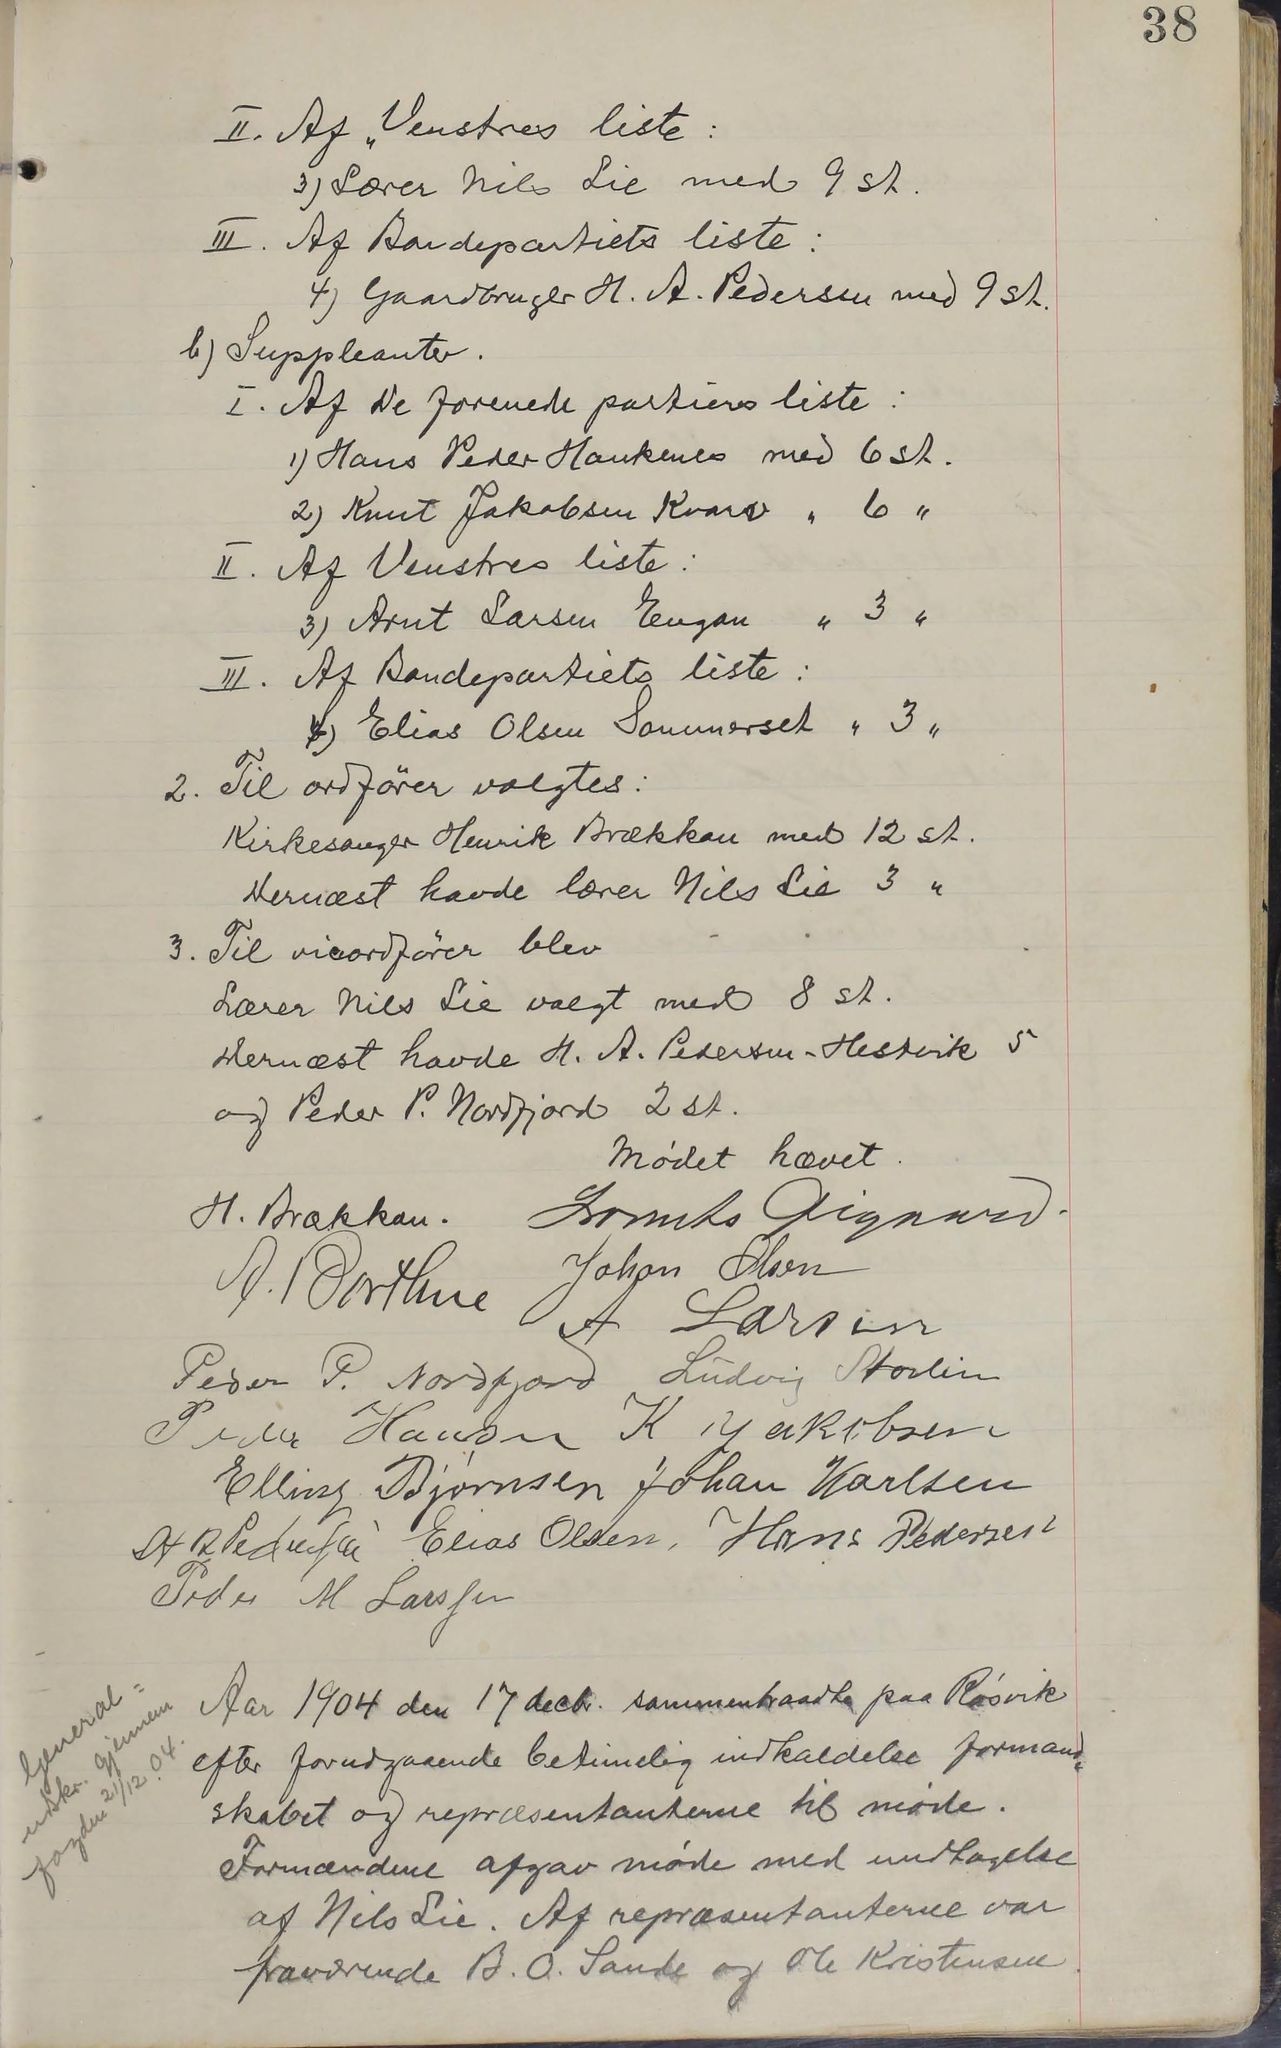 38
II. Af „Venstres liste:
3) Lærer Nils Lie med 9 st.
III. Af Bondepartiets liste:
4) Gaardbruger H. A. Pedersen med 9 st.
b) Suppleanter.
I. Af de forenede partiers liste:
1) Hans Peder Haukenes med 6 st.
2) Knut Jakobsen Kvarv „ 6 „
II. Af Venstres liste:
3) Arnt Larsen Engan „ 3 „
III. Af Bondepartiets liste:
4) Elias Olsen Sommerset „ 3 „
2. Til ordförer valgtes:
Kirkesanger Henrik Brækkan med 12 st.
Dernæst havde lærer Nils Lie 3 „
3. Til viceordförer blev
Lærer Nils Lie valgt med 8 st.
Dernæst havde H. A. Pedersen-Hestvik 5
og Peder P. Nordfjord 2 st.
Mødet hævet.
H. Brækkan. Lorents Aigaard.
A. Borthne Johan Olsen
A Larsen
Peder P. Nordfjord Ludvig Storlien
Peder Hansen K Jakobsen
Elling Bjørnsen Johan Karlsen
H A Pedersen Elias Olsen, Hans Pedersen
Peder M Larssen
Aar 1904 den 17 decbr. sammentraadte paa Røsvik
efter forudgaaende betimelig indkaldelse formand„
skabet og repræsentanterne til møde.
Formændene afgav møde med undtagelse
af Nils Lie. Af repræsentanterne var
fraværende B. O. Sande og Ole Kristensen.
General=
udskr. gjennem
fogden 21/12.04.